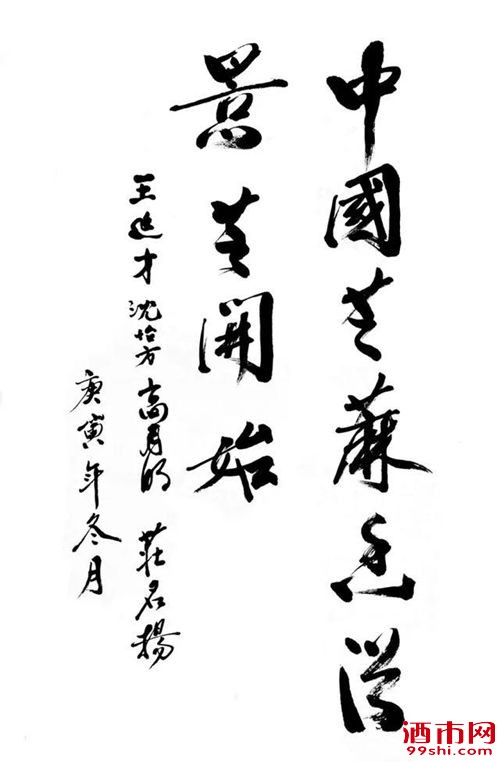 中國芝蔴香從
景芝開始
王延才 沈怡方 高月明 莊名揚
庚寅年冬月
酒市网
99shi.com